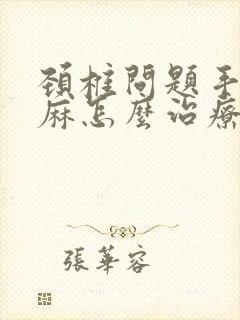 頸柱問題手
麻怎麼治療
張華容